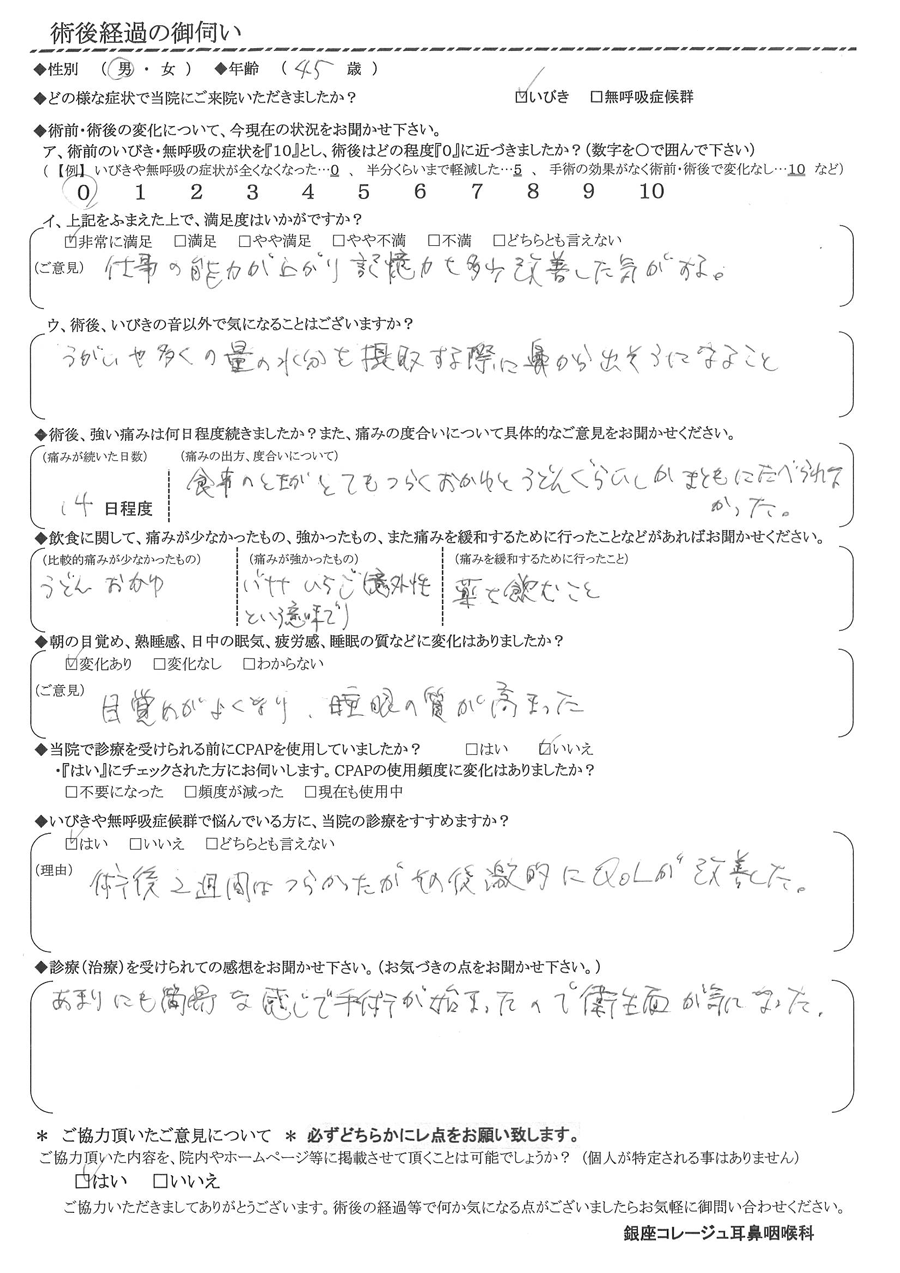 術後経過の御伺い
◆性別 （ 男 ・ 女 ） ◆年齢 （ 45 歳 ）
◆どの様な症状で当院にご来院いただきましたか？ ☑いびき □無呼吸症候群
◆術前・術後の変化について、今現在の状況をお聞かせ下さい。
ア、術前のいびき・無呼吸の症状を『10』とし、術後はどの程度『0』に近づきましたか？（数字を〇で囲んで下さい）
（【例】 いびきや無呼吸の症状が全くなくなった…0 、 半分くらいまで軽減した…5 、 手術の効果がなく術前・術後で変化なし…10 など）
0 1 2 3 4 5 6 7 8 9 10
イ、上記をふまえた上で、満足度はいかがですか？
☑非常に満足 □満足 □やや満足 □やや不満 □不満 □どちらとも言えない
（ご意見） 仕事の能力が上がり記憶力も多少改善した気がする。
ウ、術後、いびきの音以外で気になることはございますか？
うがいや多くの量の水分を摂取する際に鼻から出そうになること
◆術後、強い痛みは何日程度続きましたか？また、痛みの度合いについて具体的なご意見をお聞かせください。
（痛みが続いた日数） （痛みの出方、度合いについて）
食事のときがとてもつらくおかゆとうどんぐらいしかまともにたべられな
14 日程度 かった。
◆飲食に関して、痛みが少なかったもの、強かったもの、また痛みを緩和するために行ったことなどがあればお聞かせください。
（比較的痛みが少なかったもの） （痛みが強かったもの） （痛みを緩和するために行ったこと）
うどん おかゆ バナナ いちご（意外性 薬を飲むこと
という意味で）
◆朝の目覚め、熟睡感、日中の眠気、疲労感、睡眠の質などに変化はありましたか？
☑変化あり □変化なし □わからない
（ご意見） 目覚めがよくなり、睡眠の質が高まった
◆当院で診療を受けられる前にCPAPを使用していましたか？ □はい ☑いいえ
・『はい』にチェックされた方にお伺いします。CPAPの使用頻度に変化はありましたか？
□不要になった □頻度が減った □現在も使用中
◆いびきや無呼吸症候群で悩んでいる方に、当院の診療をすすめますか？
☑はい □いいえ □どちらとも言えない
（理由） 術後2週間はつらかったがその後激的にQoLが改善した。
◆診療（治療）を受けられての感想をお聞かせ下さい。（お気づきの点をお聞かせ下さい。）
あまりにも簡易な感じで手術が始まったので衛生面が気になった。
＊ ご協力頂いたご意見について ＊ 必ずどちらかにレ点をお願い致します。
ご協力頂いた内容を、院内やホームページ等に掲載させて頂くことは可能でしょうか？ （個人が特定される事はありません）
☑はい □いいえ
ご協力いただきましてありがとうございます。術後の経過等で何か気になる点がございましたらお気軽に御問い合わせください。
銀座コレージュ耳鼻咽喉科